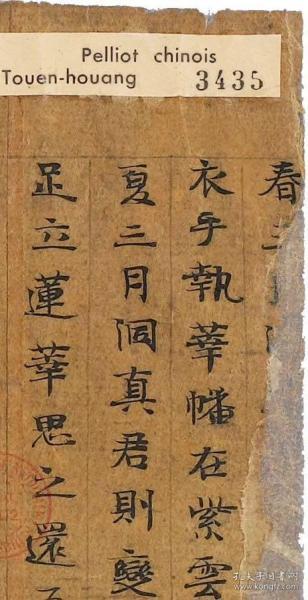 Pelliot chinois
Touen-houang 3435
春三
衣手執華幡在紫雲
夏三月洞真君則變
足立蓮華思之還